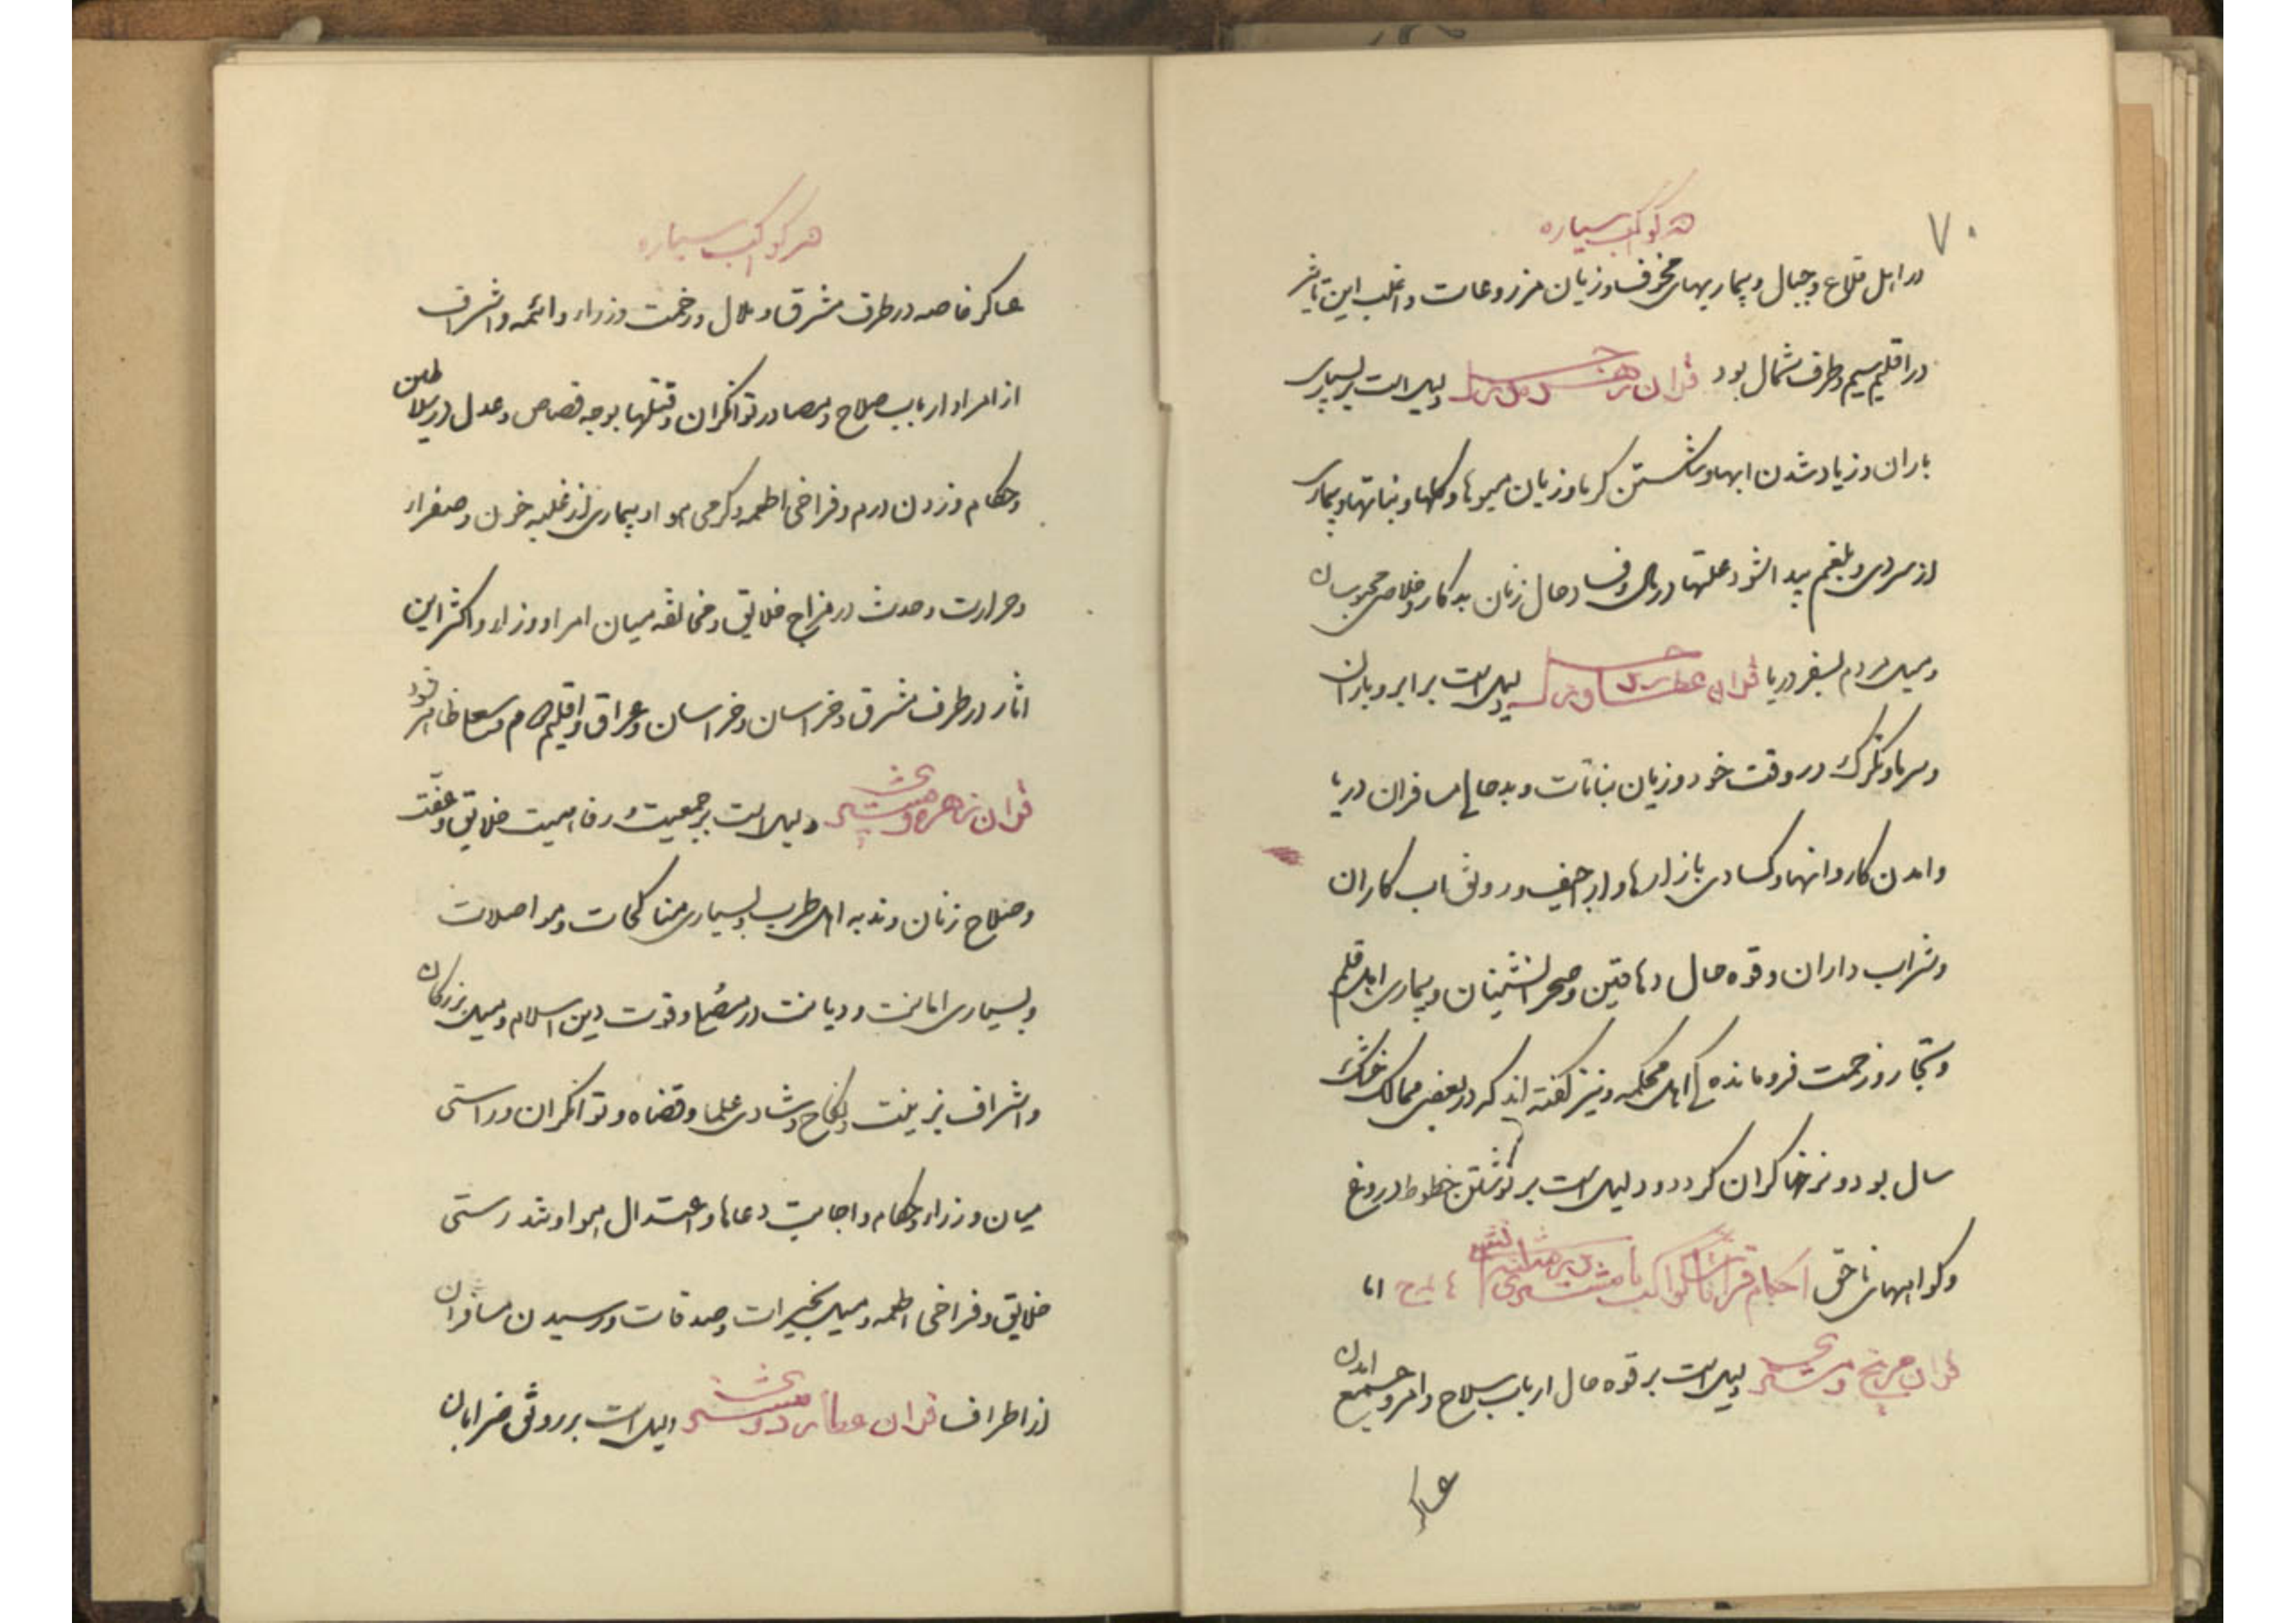 ۷۰
هر کواکب سیاره
در اهل قلاع و جبال و بیماریهای مخوف و زیان مزروعات و اغلب این تاثیر
در اقلیم سیم و طرف شمال بود قران زهره و زحل دلیل است بر بسیاری
باران و زیاد شدن ابها و شکستن کرما و زیان میوها و کلها و نباتها و بیماری
از سردی و بلغم پیدا شود علتها در و فساد حال زنان بدکار و خلاصی محبوسان
و میل مردم بسفر دریا قران عطارد و زحل دلیل است بر ابر و باران
و سرما و تکرک در وقت خود و زیان نباتات و بدحالی مسافران دریا
و امدن کاروانها و کسادی بازارها و اراجیف و رونق اب کاران
و شراب داران و قوه حال دهاقین و صحرانشینان و بیماری اهل قلم
و تجار و زحمت فرومانده کی اهل محکمه و نیز کفته اند که در بعضی ممالک خشک
سال بود و نرخها کران کردد و دلیل است بر نوشتن خطوط دروغ
و کواهیهای ناحق احکام قرانات کواکب با مشتری اما
قران مریخ و مشتری دلیل است بر قوه حال ارباب سلاح و امرا و جمع امدن
عساکر
هر کواکب سیاره
عساکر خاصه در طرف مشرق و ملال و زحمت وزراء و ائمه و اشراف
از امرا و ارباب صلاح و مصادر توانکران و قتلها بوجه قصاص و عدل در سلاطین
و حکام و زدن درم و فراخی اطعمه و کرمی هوا و بیماری از غلبه خون و صفرا و
و حرارت و حدت در مزاج خلایق و مخالفه میان امرا و وزراء و اکثر این
اثار در طرف مشرق و خراسان و خراسان و عراق و اقلیم ظاهر شود
قران زهره و مشتری دلیل است بر جمعیت و رفاهیت خلایق و عفت
و صلاح زنان و ندبه اهل طرب و بسیاری مناکحات و مواصلات
و بسیاری امانت و دیانت در و قوت دین اسلام و میل بزرکان
و اشراف بزینت و نکاح و شادی علما و قضاه و توانکران و راستی
میان وزراء و حکام و اجابت دعاها و اعتدال هوا و تندرستی
خلایق و فراخی اطعمه و میل بخیرات و صدقات و رسیدن مسافران
از اطراف قران عطارد و مشتری دلیل است بر رونق ضرابان